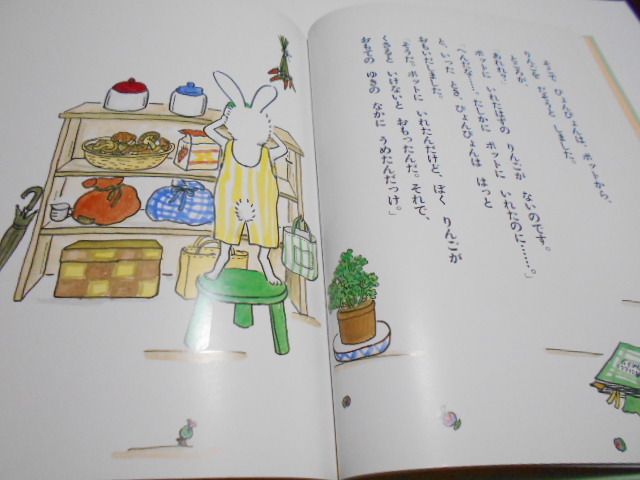 よるです。ひょんぴょんは、ポットから、
りんごを だそうと しました。
ところが、
「あれれ？
ポットに いれたはずの りんごが ないのです。
「へんだな……。たしかに ポットに いれたのに……。」
と、いった とき、ひょんぴょんは はっと
おもいだしました。
「そうだ、ポットに いれたんだけど、ぼく りんごが
くさると いけないと おもったんだ。それで、
おもての ゆきの なかに うめたんだっけ。」